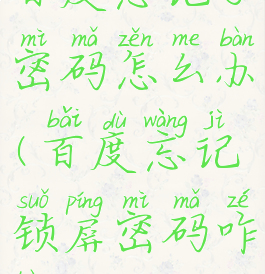 百度忘记
mì mǎ zěn me bàn
密码怎么办
bǎi dù wàng jì
(百度忘记
suǒ píng mì mǎ zé
锁屏密码咋